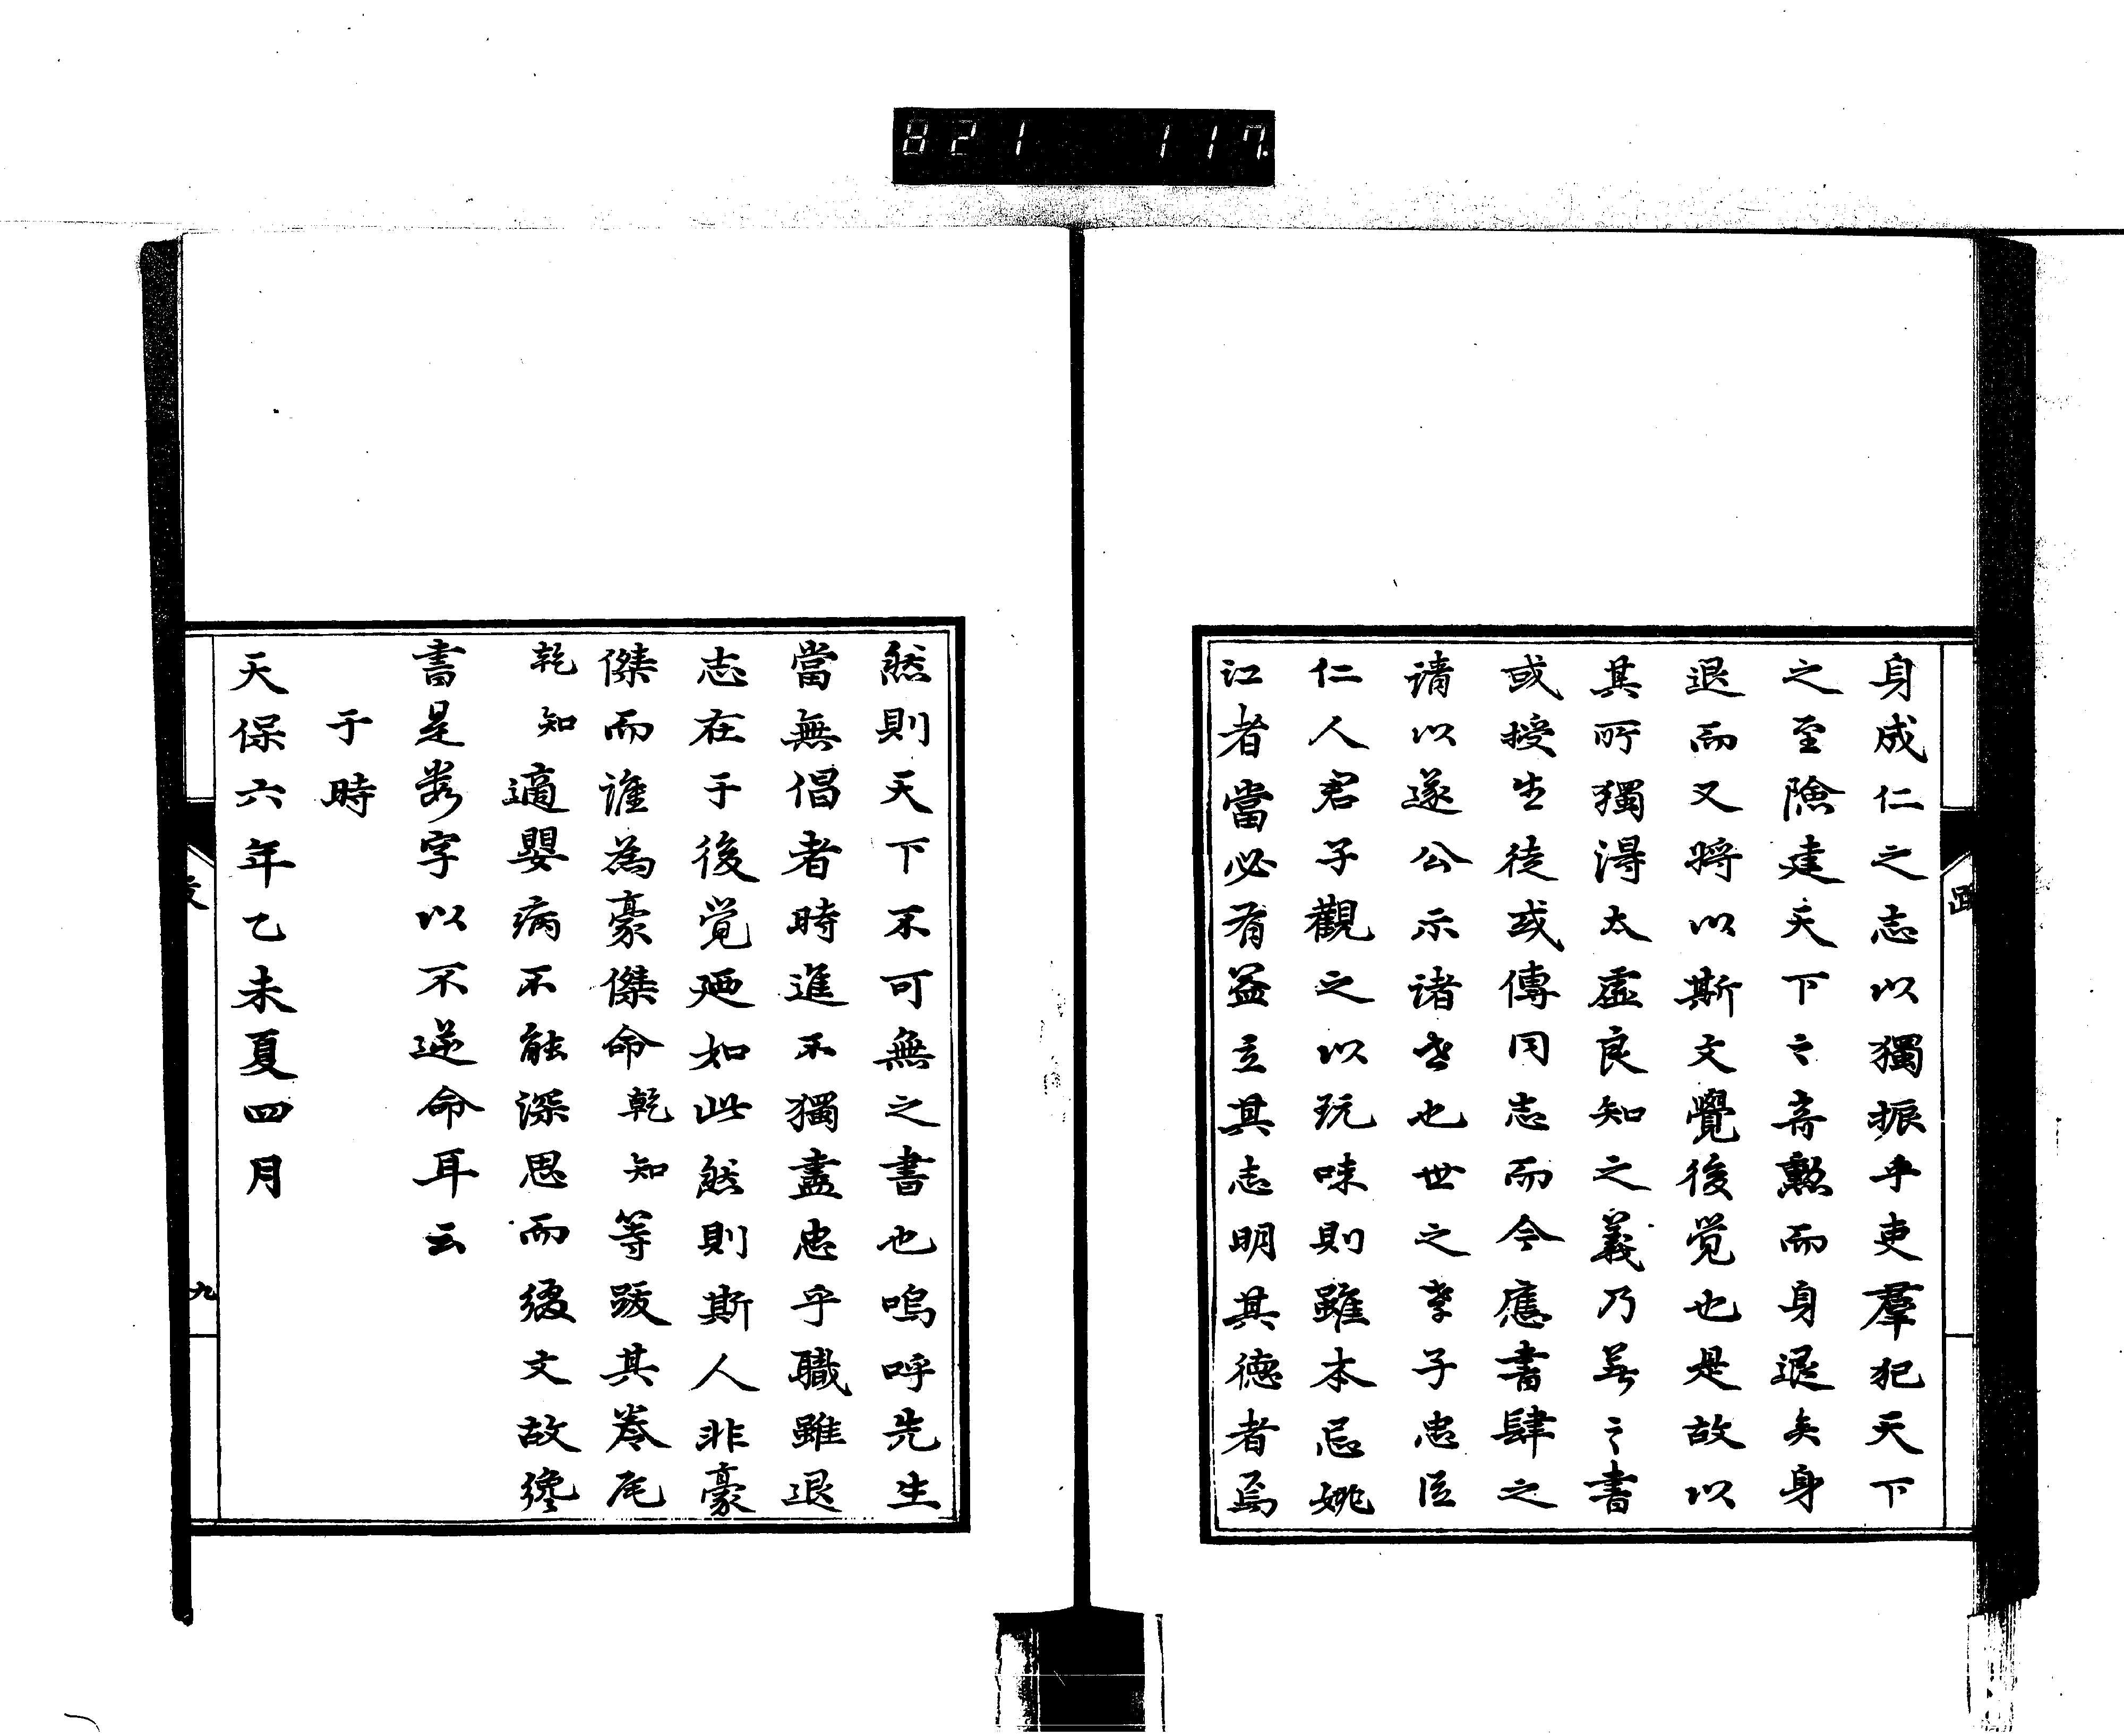 821 117
身成仁之志以獨振乎吏羣犯天下
之至險建天下〻奇勲而身退矣身
退而又將以斯文覺後覚也是故以
其所獨得太虛良知之義乃著〻書
或授生徒或傳同志而今應書肆之
請以遂公示諸世也世之孝子忠臣
仁人君子觀之以玩味則雖本忌姚
江者當必有益立其志明其德者焉
然則天下不可無之書也嗚呼先生
當無倡者時進不獨盡忠乎職雖退
志在于後覚廼如此然則斯人非豪
傑而誰為豪傑命乾知等跋其卷尾
乾知適嬰病不能深思而綴文故纔
書是數字以不逆命耳云
于時
天保六年乙未夏四月
九